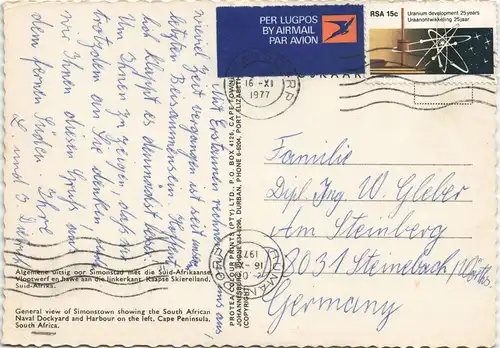 PER LUGPOS
BY AIRMAIL
PAR AVION
RSA 15c
Uranium development 25 years
Uraanontwikkeling 25 jaar
16 -XI
1977
Mit Erstaunen rechnen wir uns aus,
wieviel Zeit vergangen ist seit unserm
letzten Beisammensein. Hoffentlich
klappt es demnächst
Um Ihnen zu zeigen, daß wir
trotzdem an Sie denken, senden
wir Ihnen diesen Gruß aus
dem fernen Süden. Ihre
und
Familie
Dipl. Ing. W. Gleber
Am Steinberg
8031 Steinebach/Wörths.
Germany
Algemene uitsig oor Simonstad met die Suid-Afrikaanse
Vlootswerf en hawe aan die linkerkant. Kaapse Skiereiland,
Suid-Afrika.
General view of Simonstown showing the South African
Naval Dockyard and Harbour on the left. Cape Peninsula,
South Africa.
PROTEA COLOUR PRINTS (PTY) LTD., P.O. BOX 4126, CAPE TOWN
DURBAN, PHONE 6-9204, PORT ELIZABETH
(COPYRIGHT)
16 -XI
197